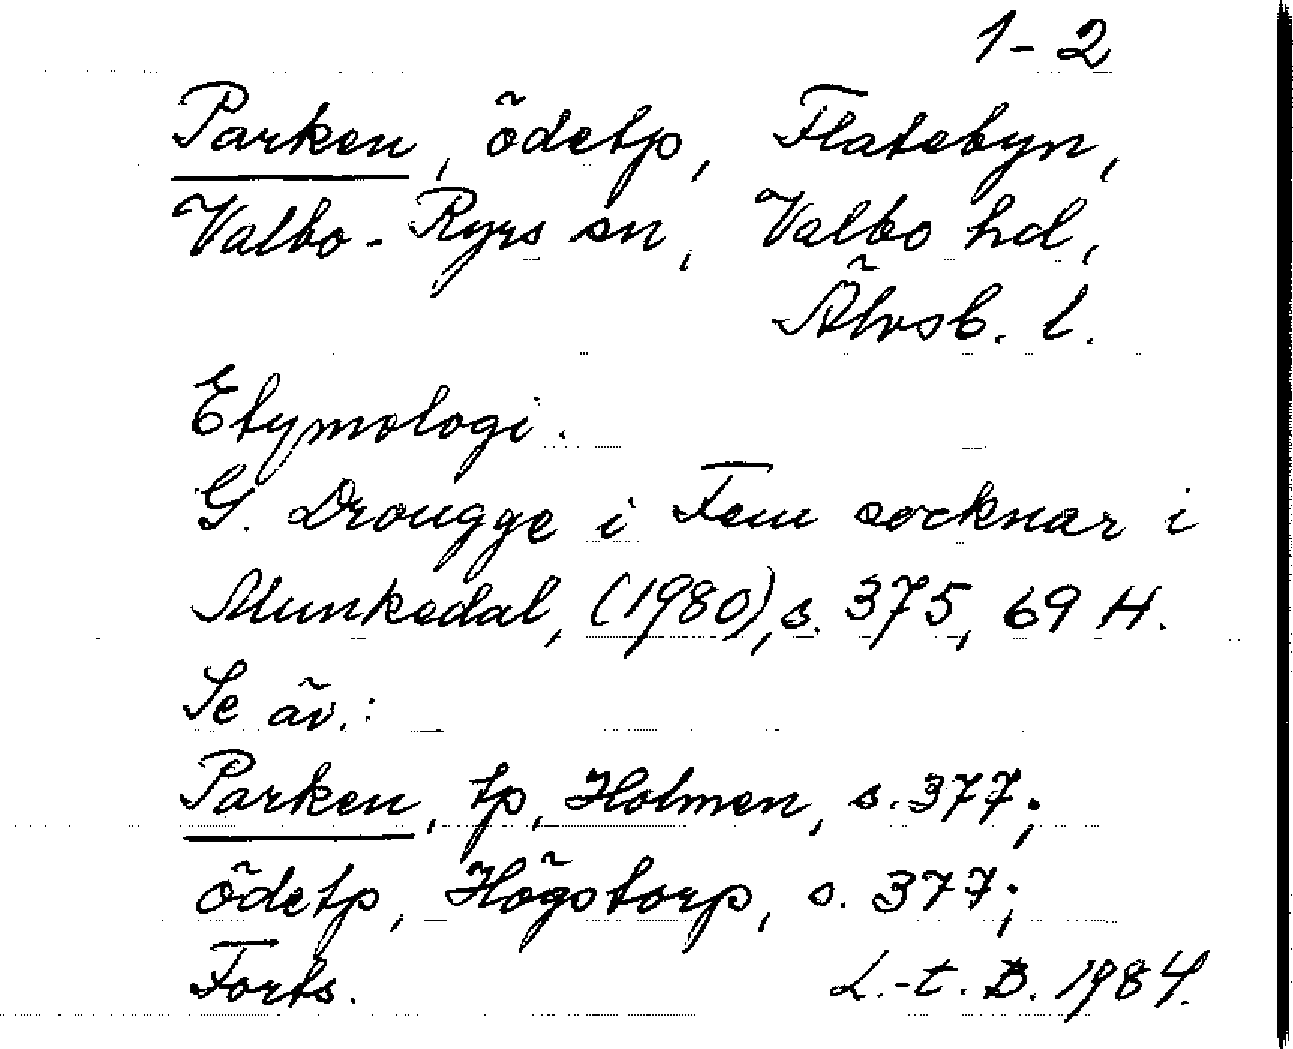 1-2
Parken, ödetp, Flatebyn,
Valbo-Ryrs sn, Valbo hd,
Älvsb. l.
Etymologi.
G. Drougge i Fem socknar i
Munkedal, (1980), s. 375, 69 H.
Se äv.:
Parken, tp, Holmen, s. 377;
ödetp, Högstorp, s. 377;
Forts. L.-t. B. 1984.